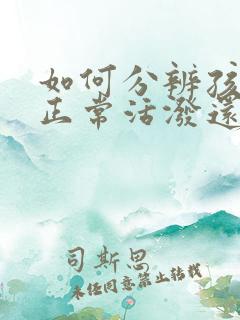 如何分辨孩
正常活潑還
司斯恩
未经同意禁止转载